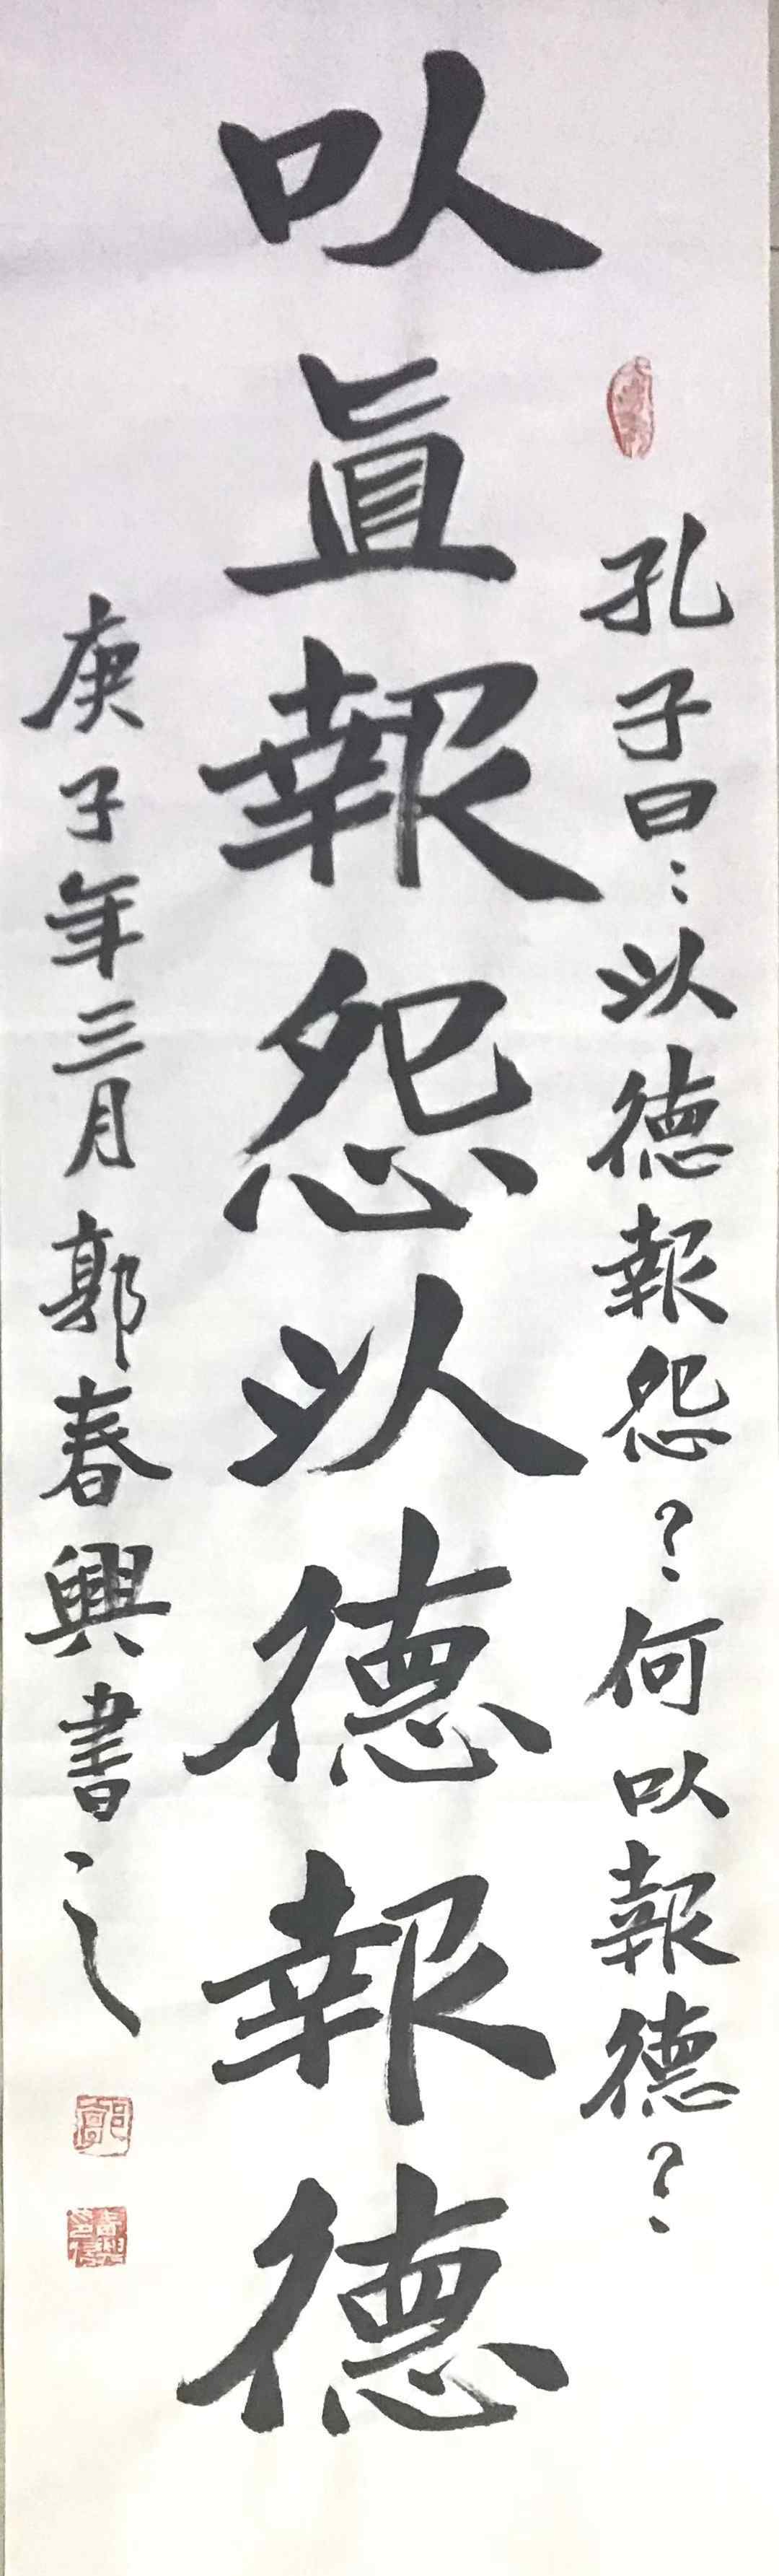 孔子曰：以德報怨？何以報德？
以直報怨以德報德
庚子年三月郭春興書之
郭
春興印信